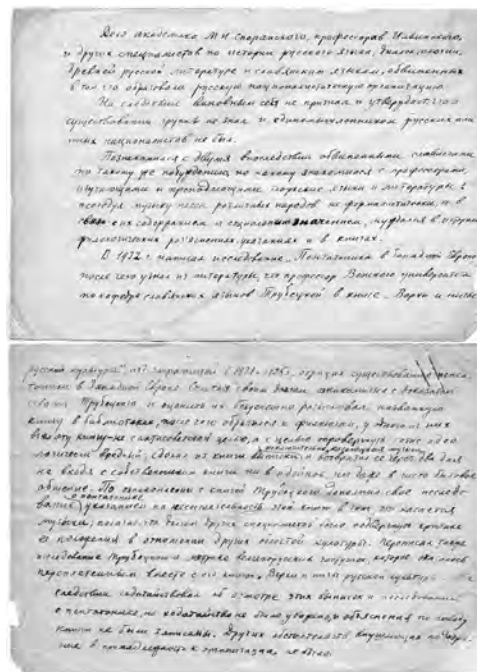 Дело академика М Н Сперанского, профессоров Ильинского,
и других специалистов по истории русского языка, диалектологии,
древней русской литературе и славянским языкам, обвиненных
в том что образовали русскую националистическую организацию.
На следствии виновным себя не признал и утверждал что о
существовании группы не знал и единомышленником русских
националистов не был.
Познакомился с двумя впоследствии обвиненными славистами
по такому же побуждению, по какому знакомился с профессорами,
изучающими и преподающими языки и литературы:
исследуя музыку песен различных народов не формалистически, а в
связи с их содержанием и социальным значением, нуждался в
филологических разъяснениях, указаниях и в книгах.
В 1932 г. написал исследование „Пентатоника в Западной Европе
после чего узнал из литературы, что профессор Венского университета
по кафедре славянских языков Трубецкой в книге „Верхи и низы
русской культуры" изд заграницей в 1921 отрицал существование
в Западной Европе Считая своим долгом ознакомиться с доказательствами
Трубецкого и оценить их безуспешно разыскивал названную
книгу в библиотеках, после чего обратился к филологам, у
книгу с целью, а с целью опровергнуть
вредный; сделал из книги выписки и возвратил ее через два дня
не входя с собственником книги ни в идейное, ни даже в чисто бытовое
общение. По ознакомлении с книгой Трубецкого дополнил свое
указанием на этой книги в том, что касается
музыки; полагал что делом других специалистов было подвергнуть критике
ее положения в отношении других областей культуры. Переписал также
исследование Трубецкого о метрике частушки, которое
переплетенным вместе с его книгой „Верхи и низы русской культуры
следствии ходатайствовал об осмотре этих выписок и исследования
о пентатонике, но ходатайство не было уважено, объяснения по поводу
книги не были записаны. Других обстоятельств
в принадлежности к организации не было.